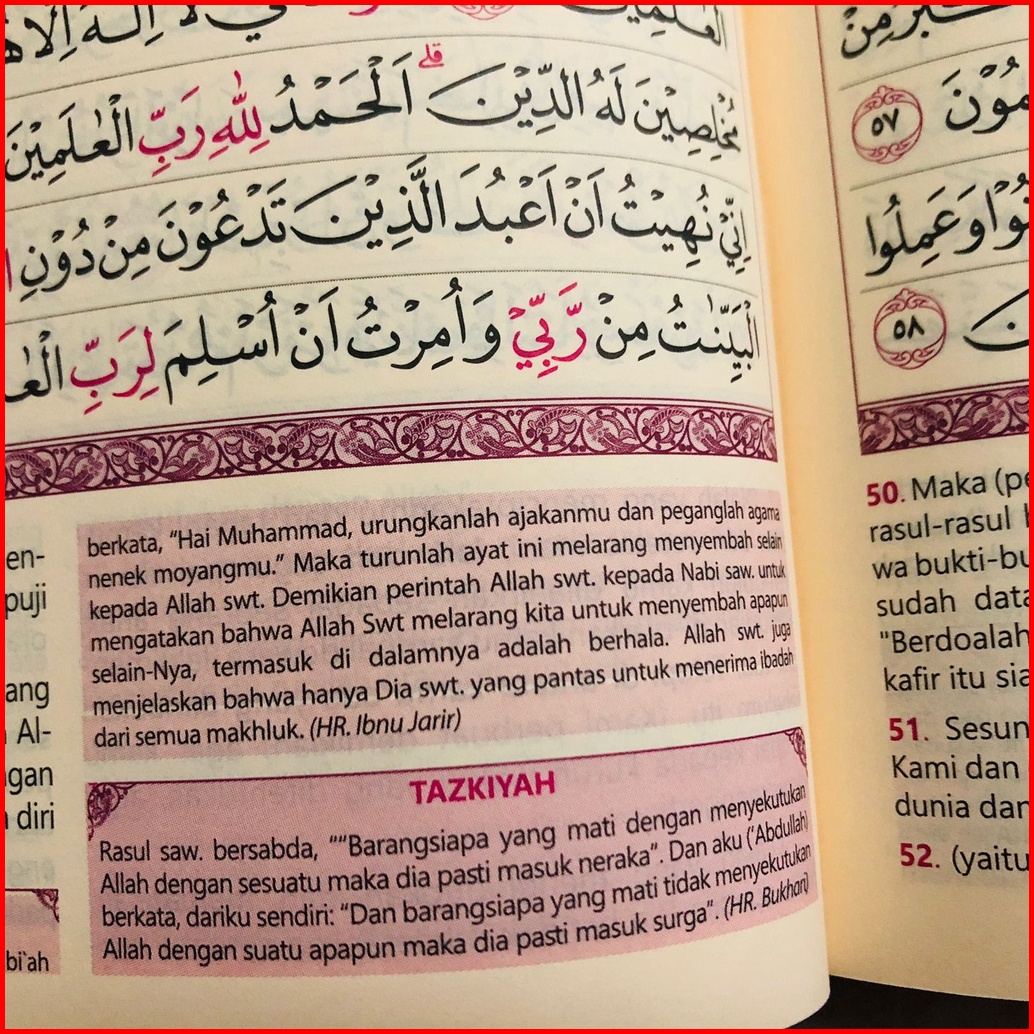 العٰلمين
هو الحي لا اله الا هو
مُخْلِصِيْنَ لَهُ الدِّيْنَ ۗ اَلْحَمْدُ لِلّٰهِ رَبِّ الْعٰلَمِيْنَ
اِنِّيْ نُهِيْتُ اَنْ اَعْبُدَ الَّذِيْنَ تَدْعُوْنَ مِنْ دُوْنِ
الْبَيِّنٰتُ مِنْ رَّبِّيْ وَاُمِرْتُ اَنْ اُسْلِمَ لِرَبِّ
berkata, “Hai Muhammad, urungkanlah ajakanmu dan peganglah agama
nenek moyangmu.” Maka turunlah ayat ini melarang menyembah selain
kepada Allah swt. Demikian perintah Allah swt. kepada Nabi saw. untuk
mengatakan bahwa Allah Swt melarang kita untuk menyembah apapun
selain-Nya, termasuk di dalamnya adalah berhala. Allah swt. juga
menjelaskan bahwa hanya Dia swt. yang pantas untuk menerima ibadah
dari semua makhluk. (HR. Ibnu Jarir)
TAZKIYAH
Rasul saw. bersabda, ““Barangsiapa yang mati dengan menyekutukan
Allah dengan sesuatu maka dia pasti masuk neraka”. Dan aku (‘Abdullah)
berkata, dariku sendiri: “Dan barangsiapa yang mati tidak menyekutukan
Allah dengan suatu apapun maka dia pasti masuk surga”. (HR. Bukhari)
en-
puji
ang
Al-
gan
diri
bi`ah
٥٧
وَعَمِلُوا
٥٨
50. Maka (pe
rasul-rasul
wa bukti-bu
sudah data
"Berdoalah
kafir itu sia
51. Sesun
Kami dan
dunia dan
52. (yaitu